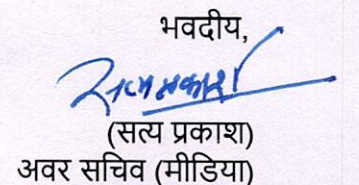 भवदीय,
सत्यप्रकाश
(सत्य प्रकाश)
अवर सचिव (मीडिया)